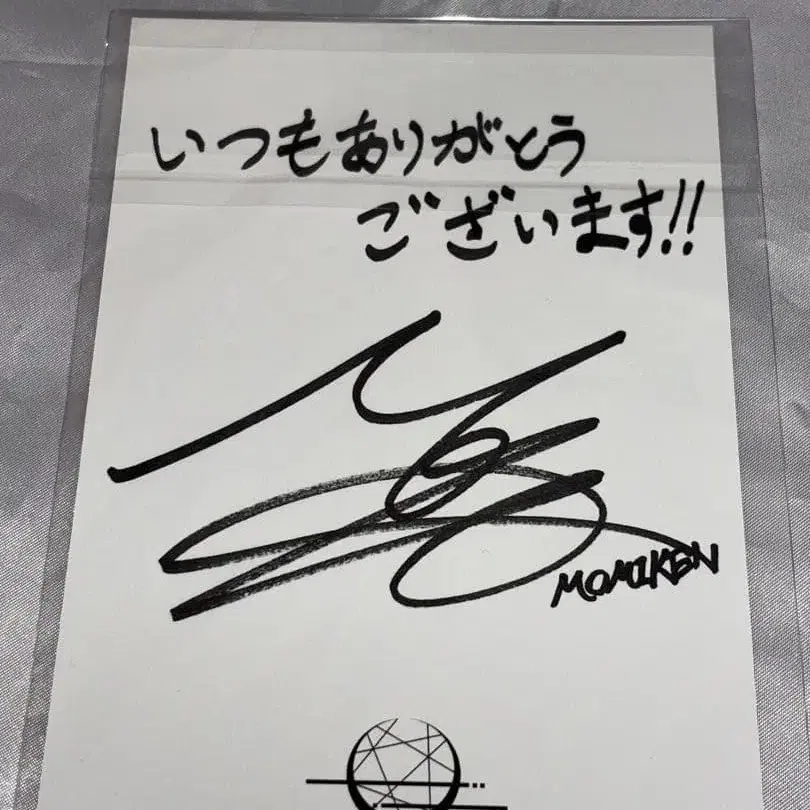 いつもありがとう
ございます!!
MOMIKEN